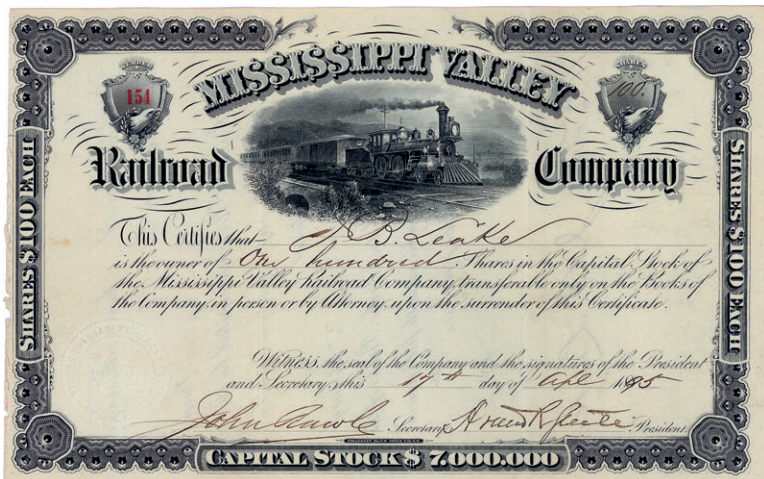 NUMBER
154
MISSISSIPPI VALLEY
SHARES
100
Railroad Company
SHARES $100 EACH
SHARES $100 EACH
This Certifies that B. Leake
is the owner of One hundred Shares in the Capital Stock of
the Mississippi Valley Railroad Company, transferable only on the Books of
the Company, in person or by Attorney, upon the surrender of this Certificate.
Witness, the seal of the Company and the signatures of the President
and Secretary, this 17th day of Apl 1885
John Secretary President
CAPITAL STOCK $ 7.000.000